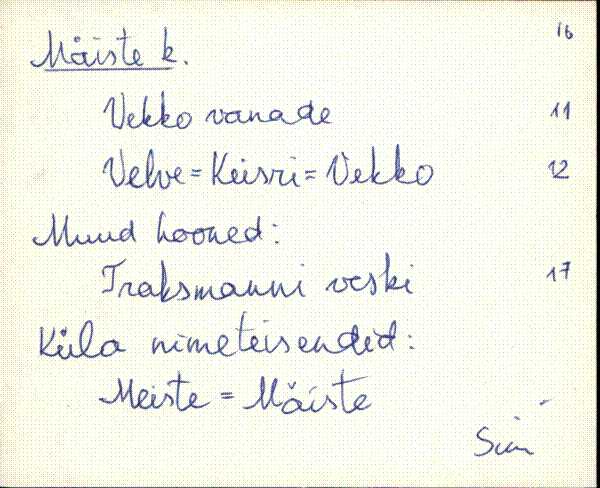 16
Mäiste k.
Vekko vanade 11
Velve = Keisri = Vekko 12
Muud hooned:
Traksmanni veski 17
Küla nimeteisendid:
Meiste = Mäiste